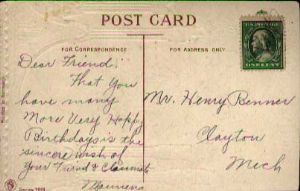 POST CARD
FOR CORRESPONDENCE
FOR ADDRESS ONLY
Dear Friend;
That You
have many
More Very Happy
Birthdays is the
sincere wish of
Your Friend &
Mr. Henry Benner
Clayton
Mich
ONE CENT